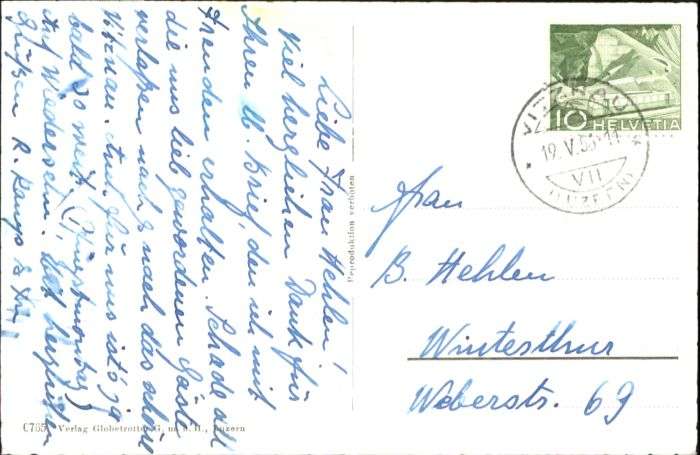 Liebe Frau Hehlen!
Viel herzlichen Dank für
Ihren lb. Brief, den ich mit
Freuden erhalten. Schade all
die uns lieb gewordenen Gäste
verlaßen nach & nach das schöne
Vitznau. Auf für uns ist's ja
bald so weit (Pfingstmontag)
Auf Wiedersehn. Mit herzlichen
Grüßen R.
C765 Verlag Globetrotter G. m. b. H., Luzern
Reproduktion verboten
10 HELVETIA
VITZNAU
19.V.53-11
VII
(LUZERN)
Frau
B. Hehlen
Winterthur
Weberstr. 69